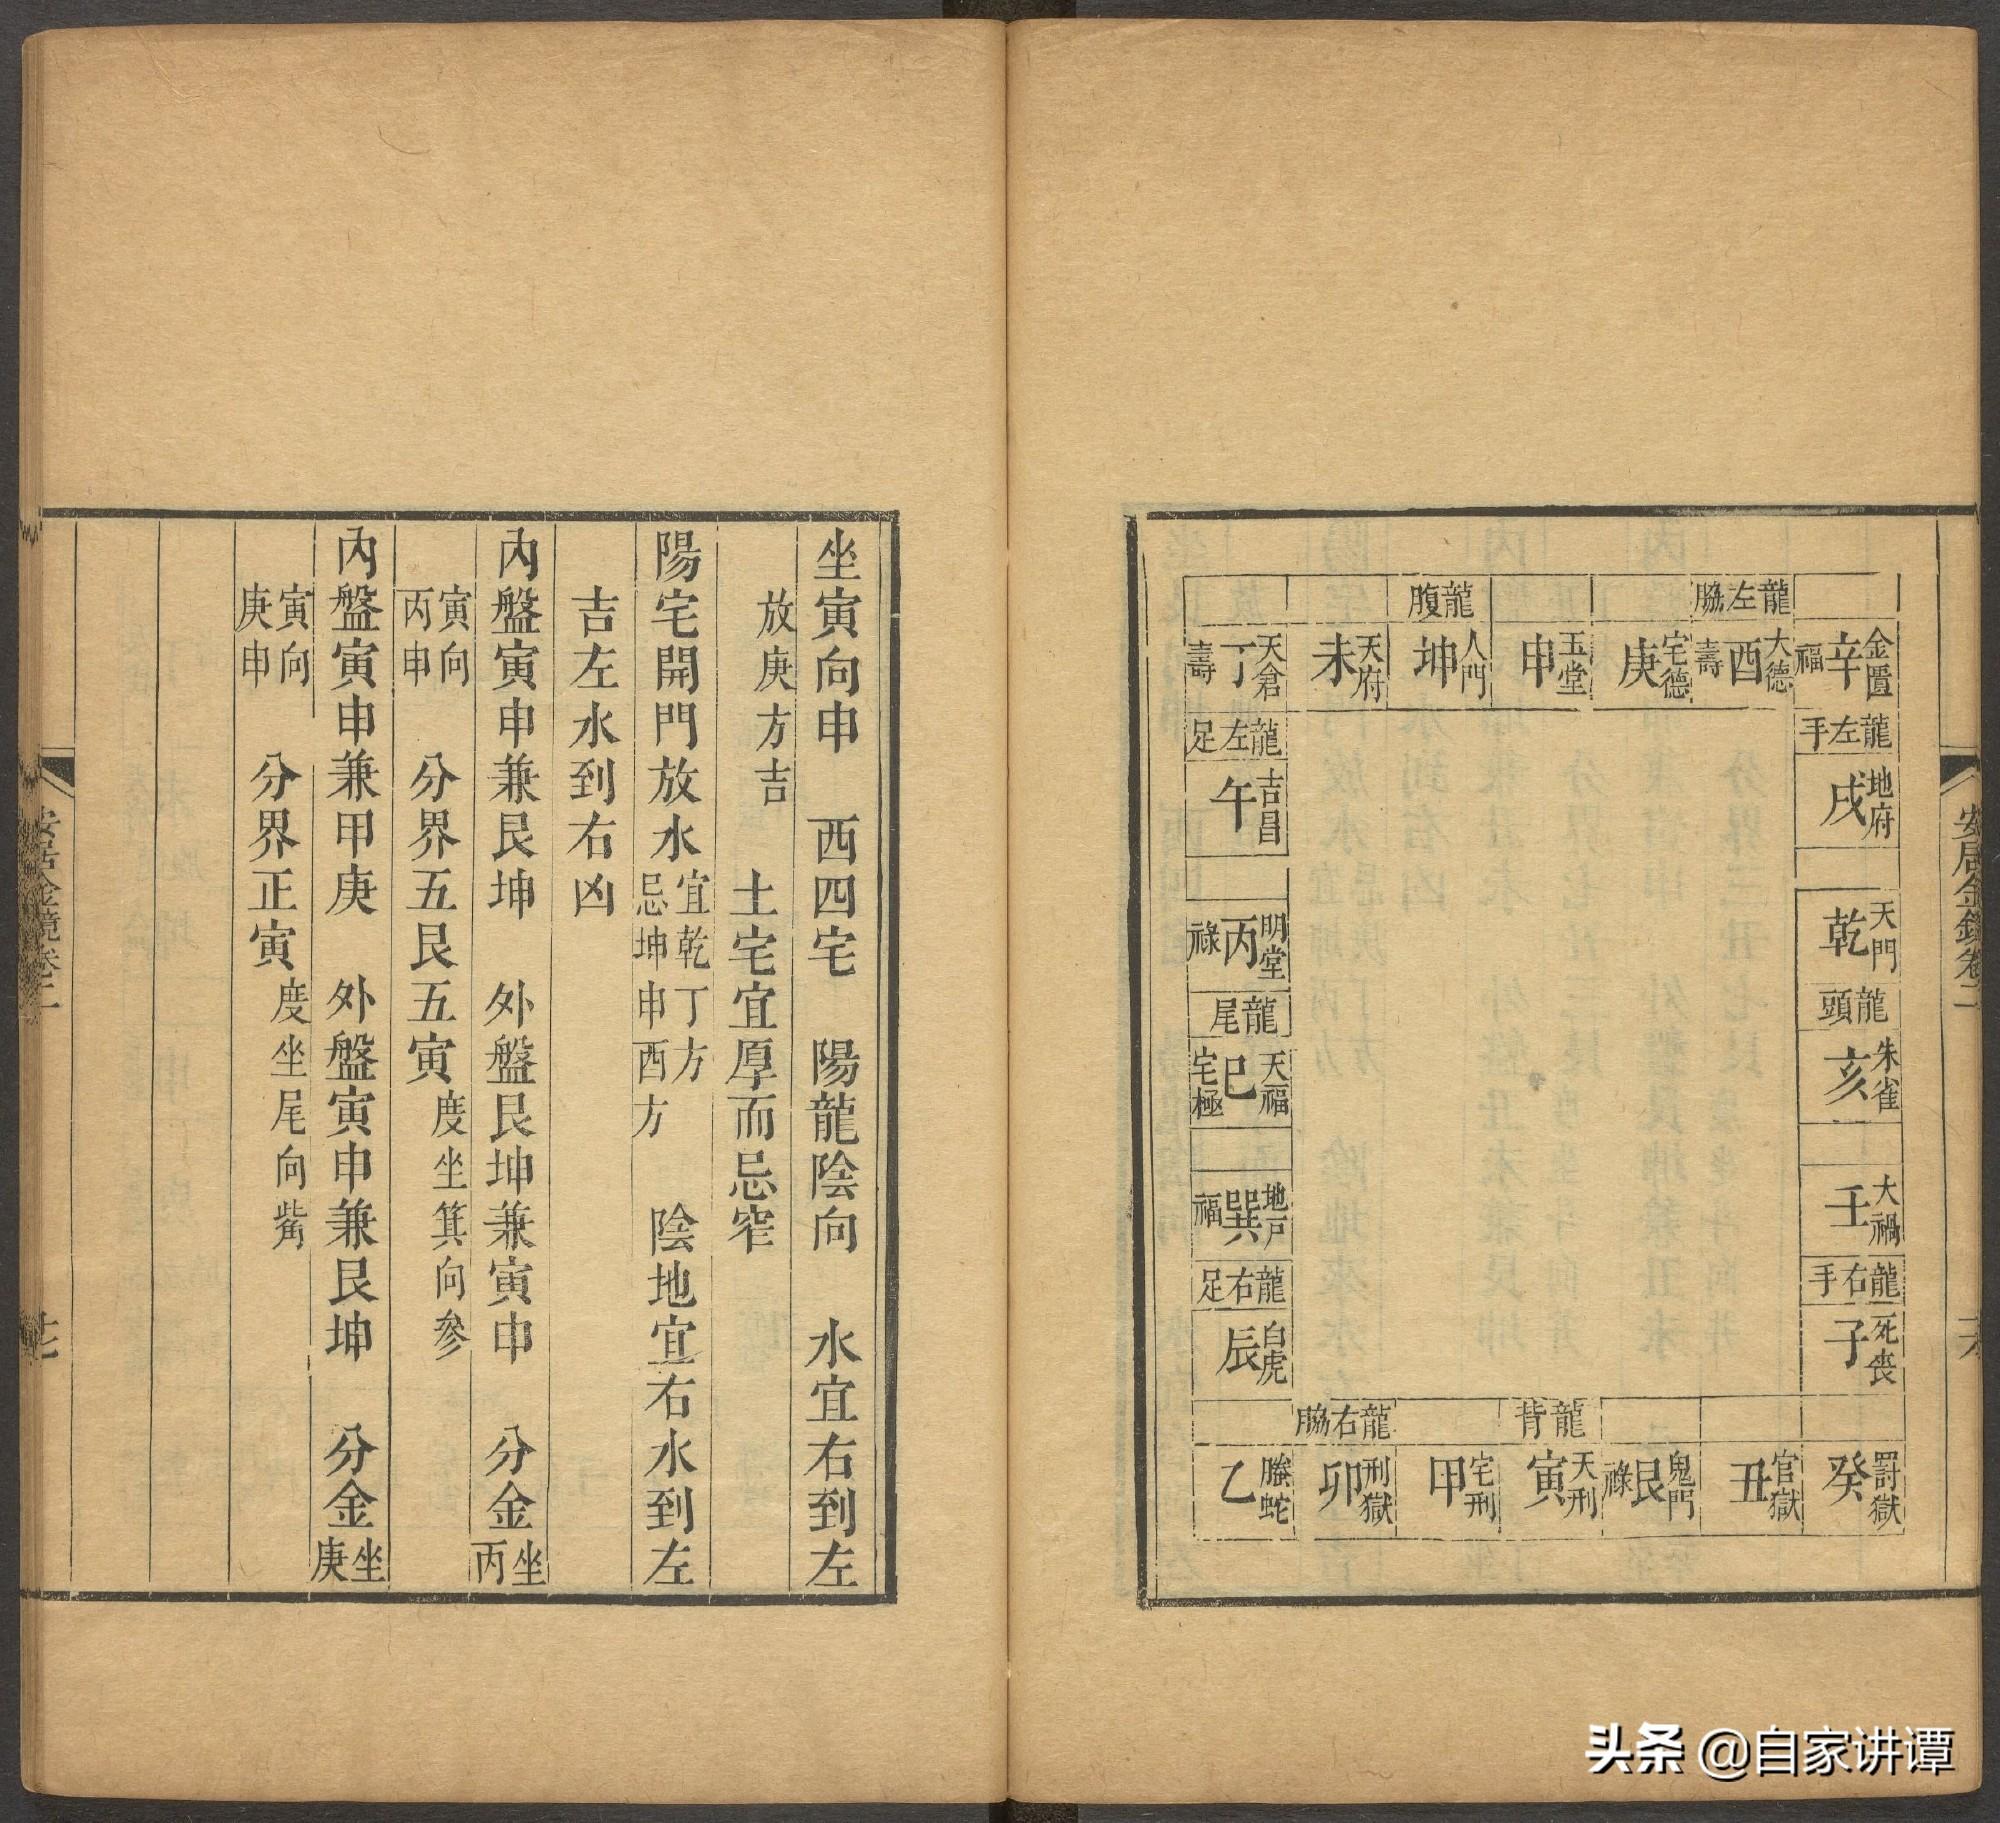 安居金鏡卷二
龍左脇
龍腹
金匱
辛
福
大德
酉
壽
宅德
庚
玉堂
申
人門
坤
天府
未
天倉
丁
壽
龍左手
地府
戌
天門
乾
龍頭
朱雀
亥
大禍
壬
龍右手
死喪
子
龍左足
吉昌
午
明堂
丙
祿
龍尾
天福
巳
宅極
地戶
巽
福
龍右足
白虎
辰
龍背
龍右脇
罰獄
癸
官獄
丑
鬼門
艮
祿
天刑
寅
宅刑
甲
刑獄
卯
螣蛇
乙
坐寅向申　西四宅　陽龍陰向　水宜右到左
放庚方吉　土宅宜厚而忌窄
陽宅開門放水宜乾丁方忌坤申酉方　陰地宜右水到左
吉左水到右凶
內盤寅申兼艮坤　外盤艮坤兼寅申　分金坐丙
寅向丙申　分界五艮五寅度坐箕向參
內盤寅申兼甲庚　外盤寅申兼艮坤　分金坐庚
寅向庚申　分界正寅度坐尾向觜
安居金鏡卷二
七
头条 @自家讲谭